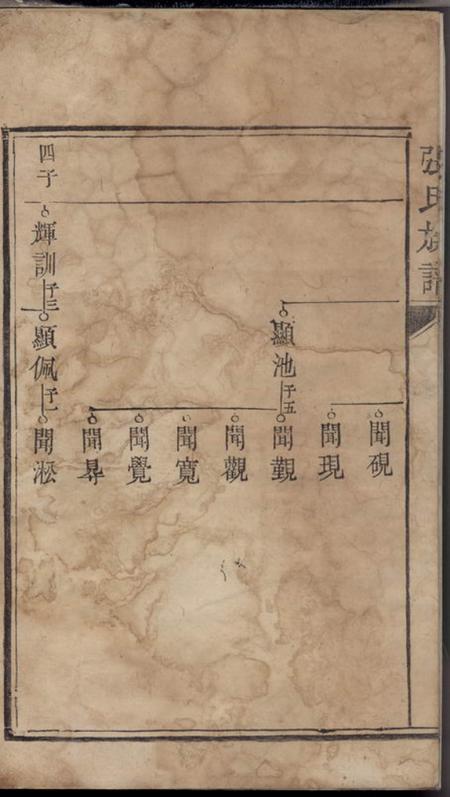 張氏族譜
聞硯
聞現
顯池 子五
聞覲
聞觀
聞寬
聞覺
聞昇
四子
輝訓 子三
顯佩 子一
聞淞